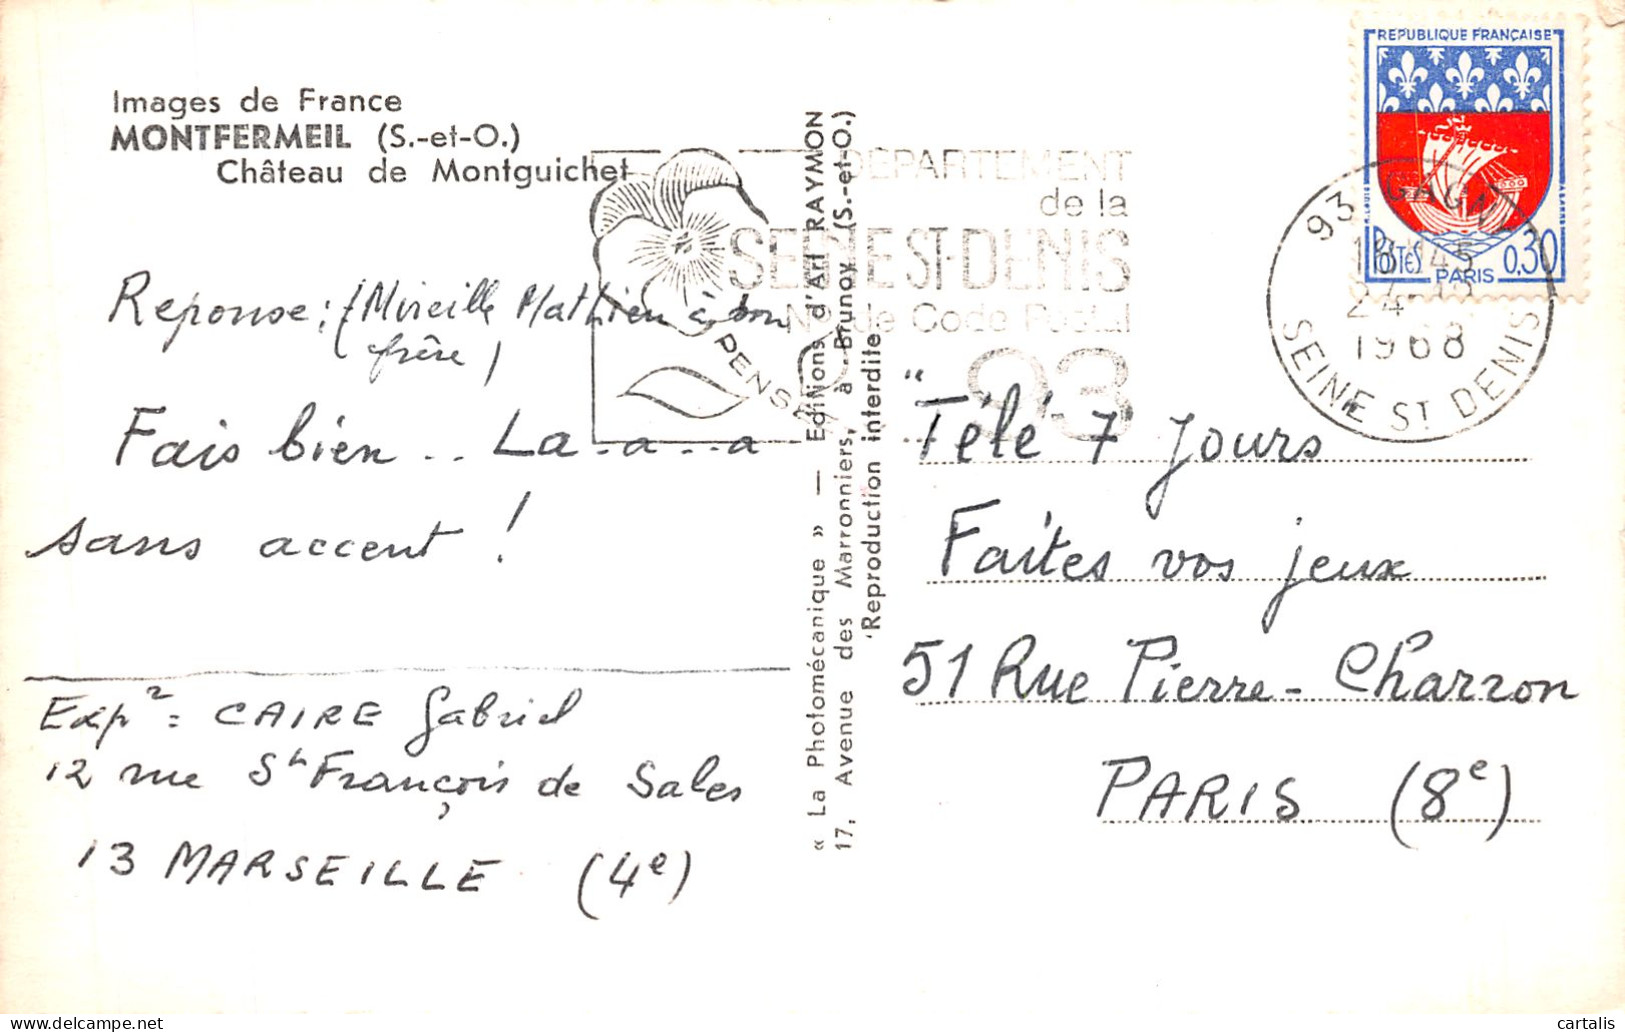 Images de France
MONTFERMEIL (S.-et-O.)
Château de Montguichet
Reponse : (Mireille Mathieu à son
frère)
Fais bien .. La - a - a
sans accent !
Exp² = CAIRE Gabriel
12 rue St François de Sales
13 MARSEILLE (4e)
« La Photomécanique » — Editions d'Art RAYMON
17, Avenue des Marronniers, à Brunoy (S.-et-O.)
Reproduction interdite
PENSEZ
DÉPARTEMENT
de la
SEINE ST-DENIS
N° de Code Postal
93
REPUBLIQUE FRANÇAISE
POSTES
PARIS
0,30
93 GAGNY
18 H 45
1968
SEINE ST DENIS
"Télé 7 Jours
Faites vos jeux
51 Rue Pierre-Charron
PARIS (8e)
cartalis